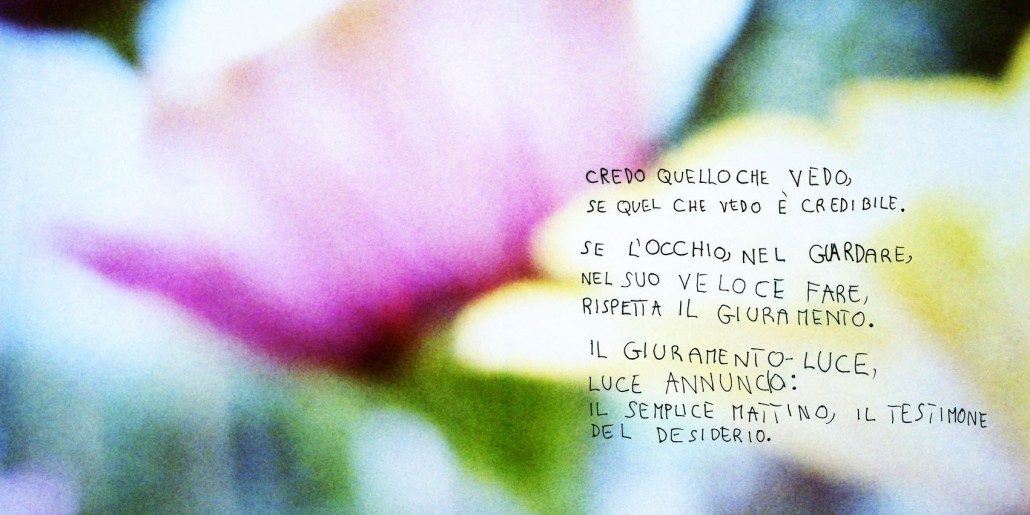 CREDO QUELLO CHE VEDO,
SE QUEL CHE VEDO È CREDIBILE.
SE L'OCCHIO, NEL GUARDARE,
NEL SUO VELOCE FARE,
RISPETTA IL GIURAMENTO.
IL GIURAMENTO-LUCE,
LUCE ANNUNCIO:
IL SEMPLICE MATTINO, IL TESTIMONE
DEL DESIDERIO.